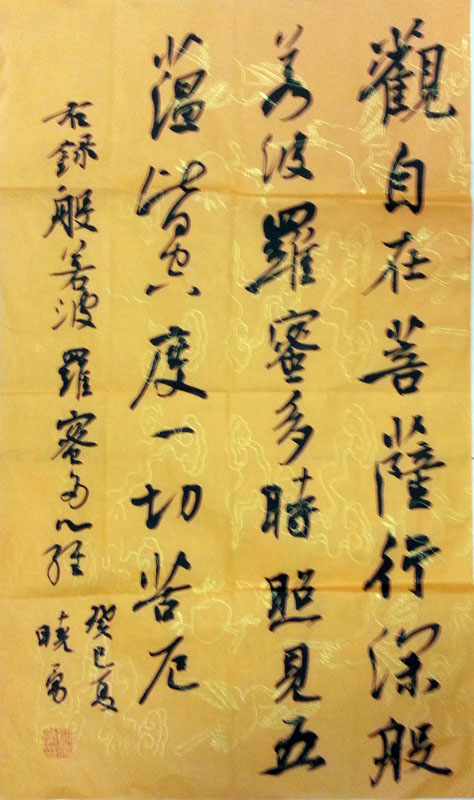 觀自在菩薩行深般
若波羅蜜多時照見五
薀皆空度一切苦厄
右錄般若波羅蜜多心經
癸巳夏
曉勇